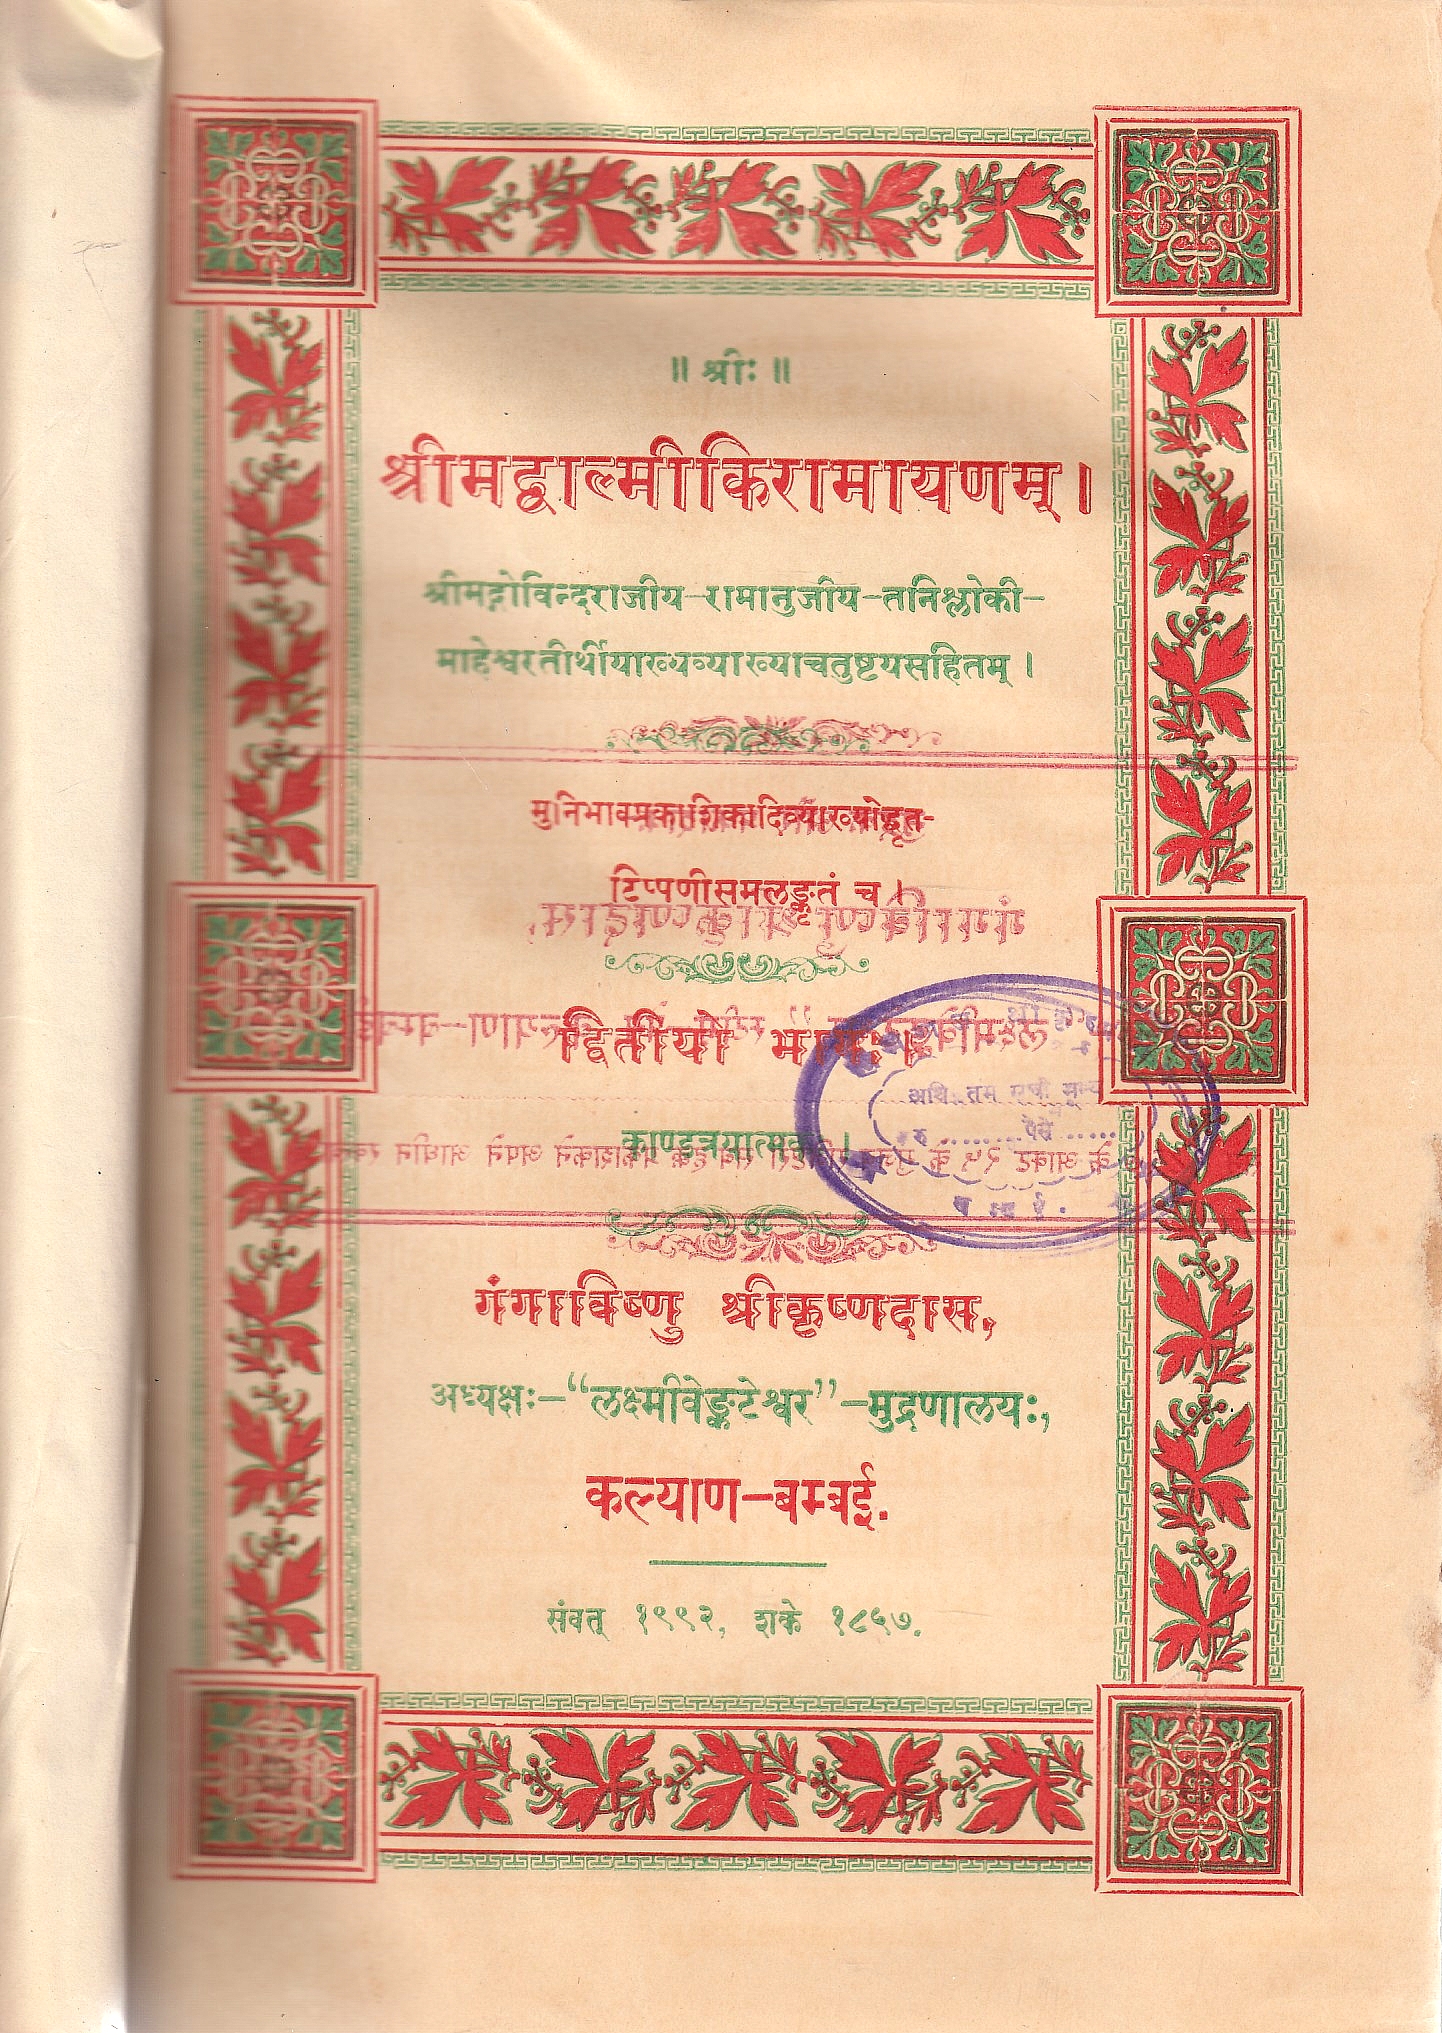 ॥ श्रीः ॥
श्रीमद्वाल्मीकिरामायणम् ।
श्रीमद्गोविन्दराजीय–रामानुजीय–तनिश्लोकी–
माहेश्वरतीर्थीयाख्यव्याख्याचतुष्टयसहितम् ।
मुनिभावप्रकाशिकादिव्याख्योद्धृत-
टिप्पणीसमलङ्कृतं च ।
द्वितीयो भागः ।
काण्डत्रयात्मकः ।
गंगाविष्णु श्रीकृष्णदास,
अध्यक्षः–“लक्ष्मीवेङ्कटेश्वर”–मुद्रणालयः,
कल्याण–बम्बई.
संवत् १९९२, शके १८५७.